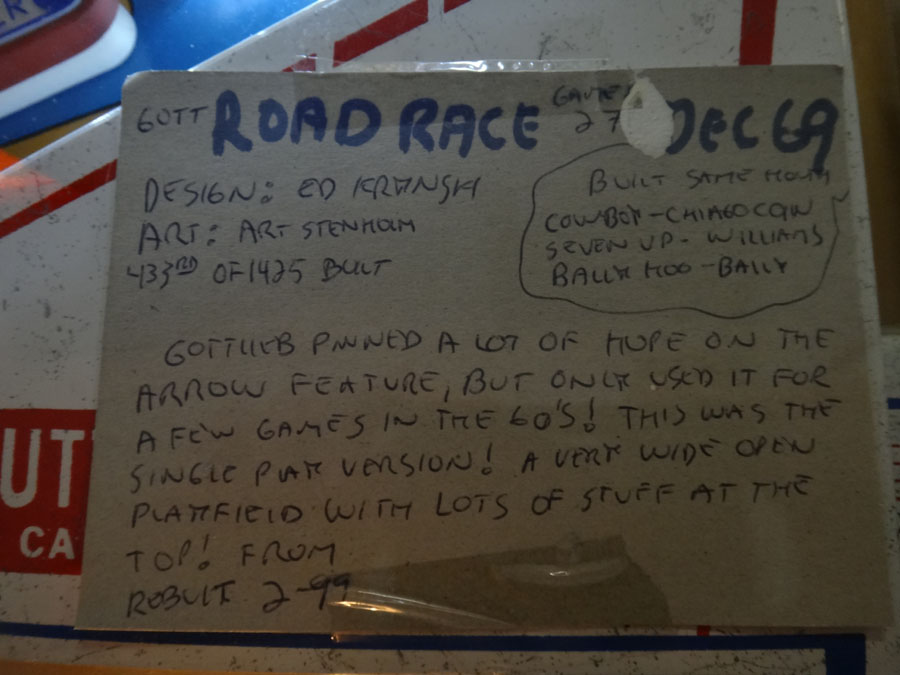 GOTT ROAD RACE DEC 69
DESIGN: ED KRYNSKI
ART: ART STENHOLM
433RD OF 1425 BUILT
BUILT SAME MONTH
COWBOY - CHIAGO COIN
SEVEN UP - WILLIAMS
BALLY HOO - BALLY
GOTTLIEB PINNED A LOT OF HOPE ON THE
ARROW FEATURE, BUT ONLY USED IT FOR
A FEW GAMES IN THE 60'S! THIS WAS THE
SINGLE PLAY VERSION! A VERY WIDE OPEN
PLAYFIELD WITH LOTS OF STUFF AT THE
TOP! FROM
REBUILT 2-99
UT
CA